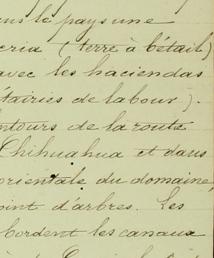 le pays une
(terre à bétail)
avec les haciendas
de labour).
de la route
Chihuahua et dans
orientale du domaine
point d'arbres. Les
bordent les canaux